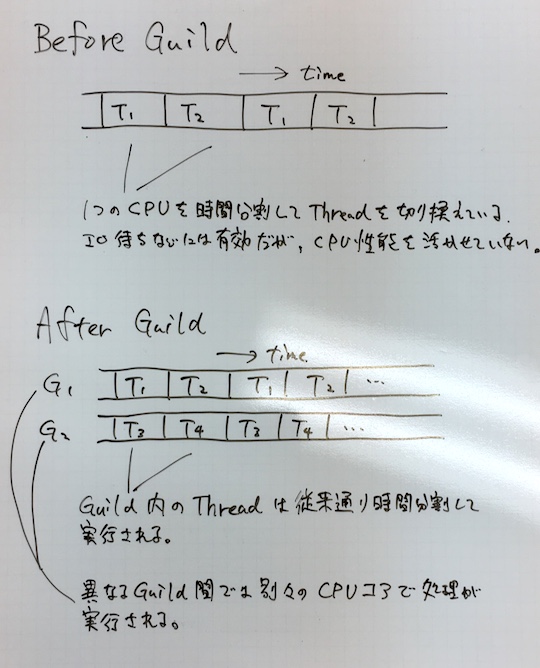 Before Guild
→ time
T₁ T₂ T₁ T₂
1つのCPUを時間分割してThreadを切り換えている.
IO待ちないには有効だが, CPU性能を活かせていない.
After Guild
→ time
G₁ T₁ T₂ T₁ T₂ …
G₂ T₃ T₄ T₃ T₄ …
Guild内のThreadは従来通り時間分割して
実行される。
異なるGuild間では別々のCPUコアで処理が
実行される。